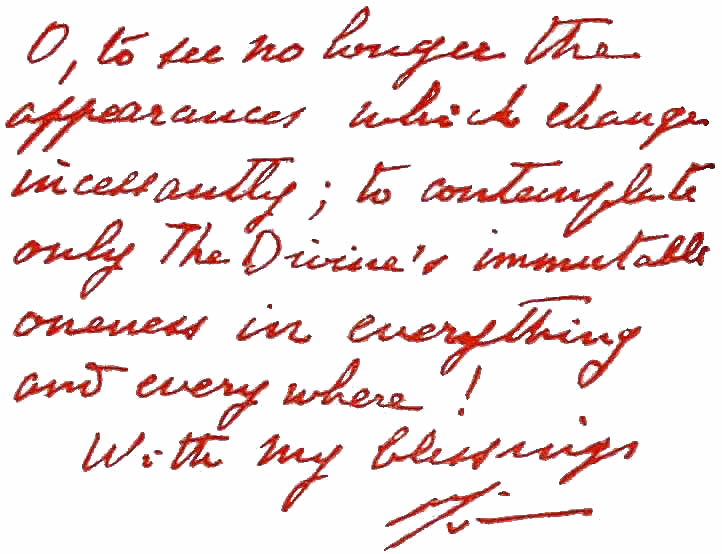 O, to see no longer the
appearances which change
incessantly; to contemplate
only The Divine's immutable
oneness in everything
and every where!
With my blessings